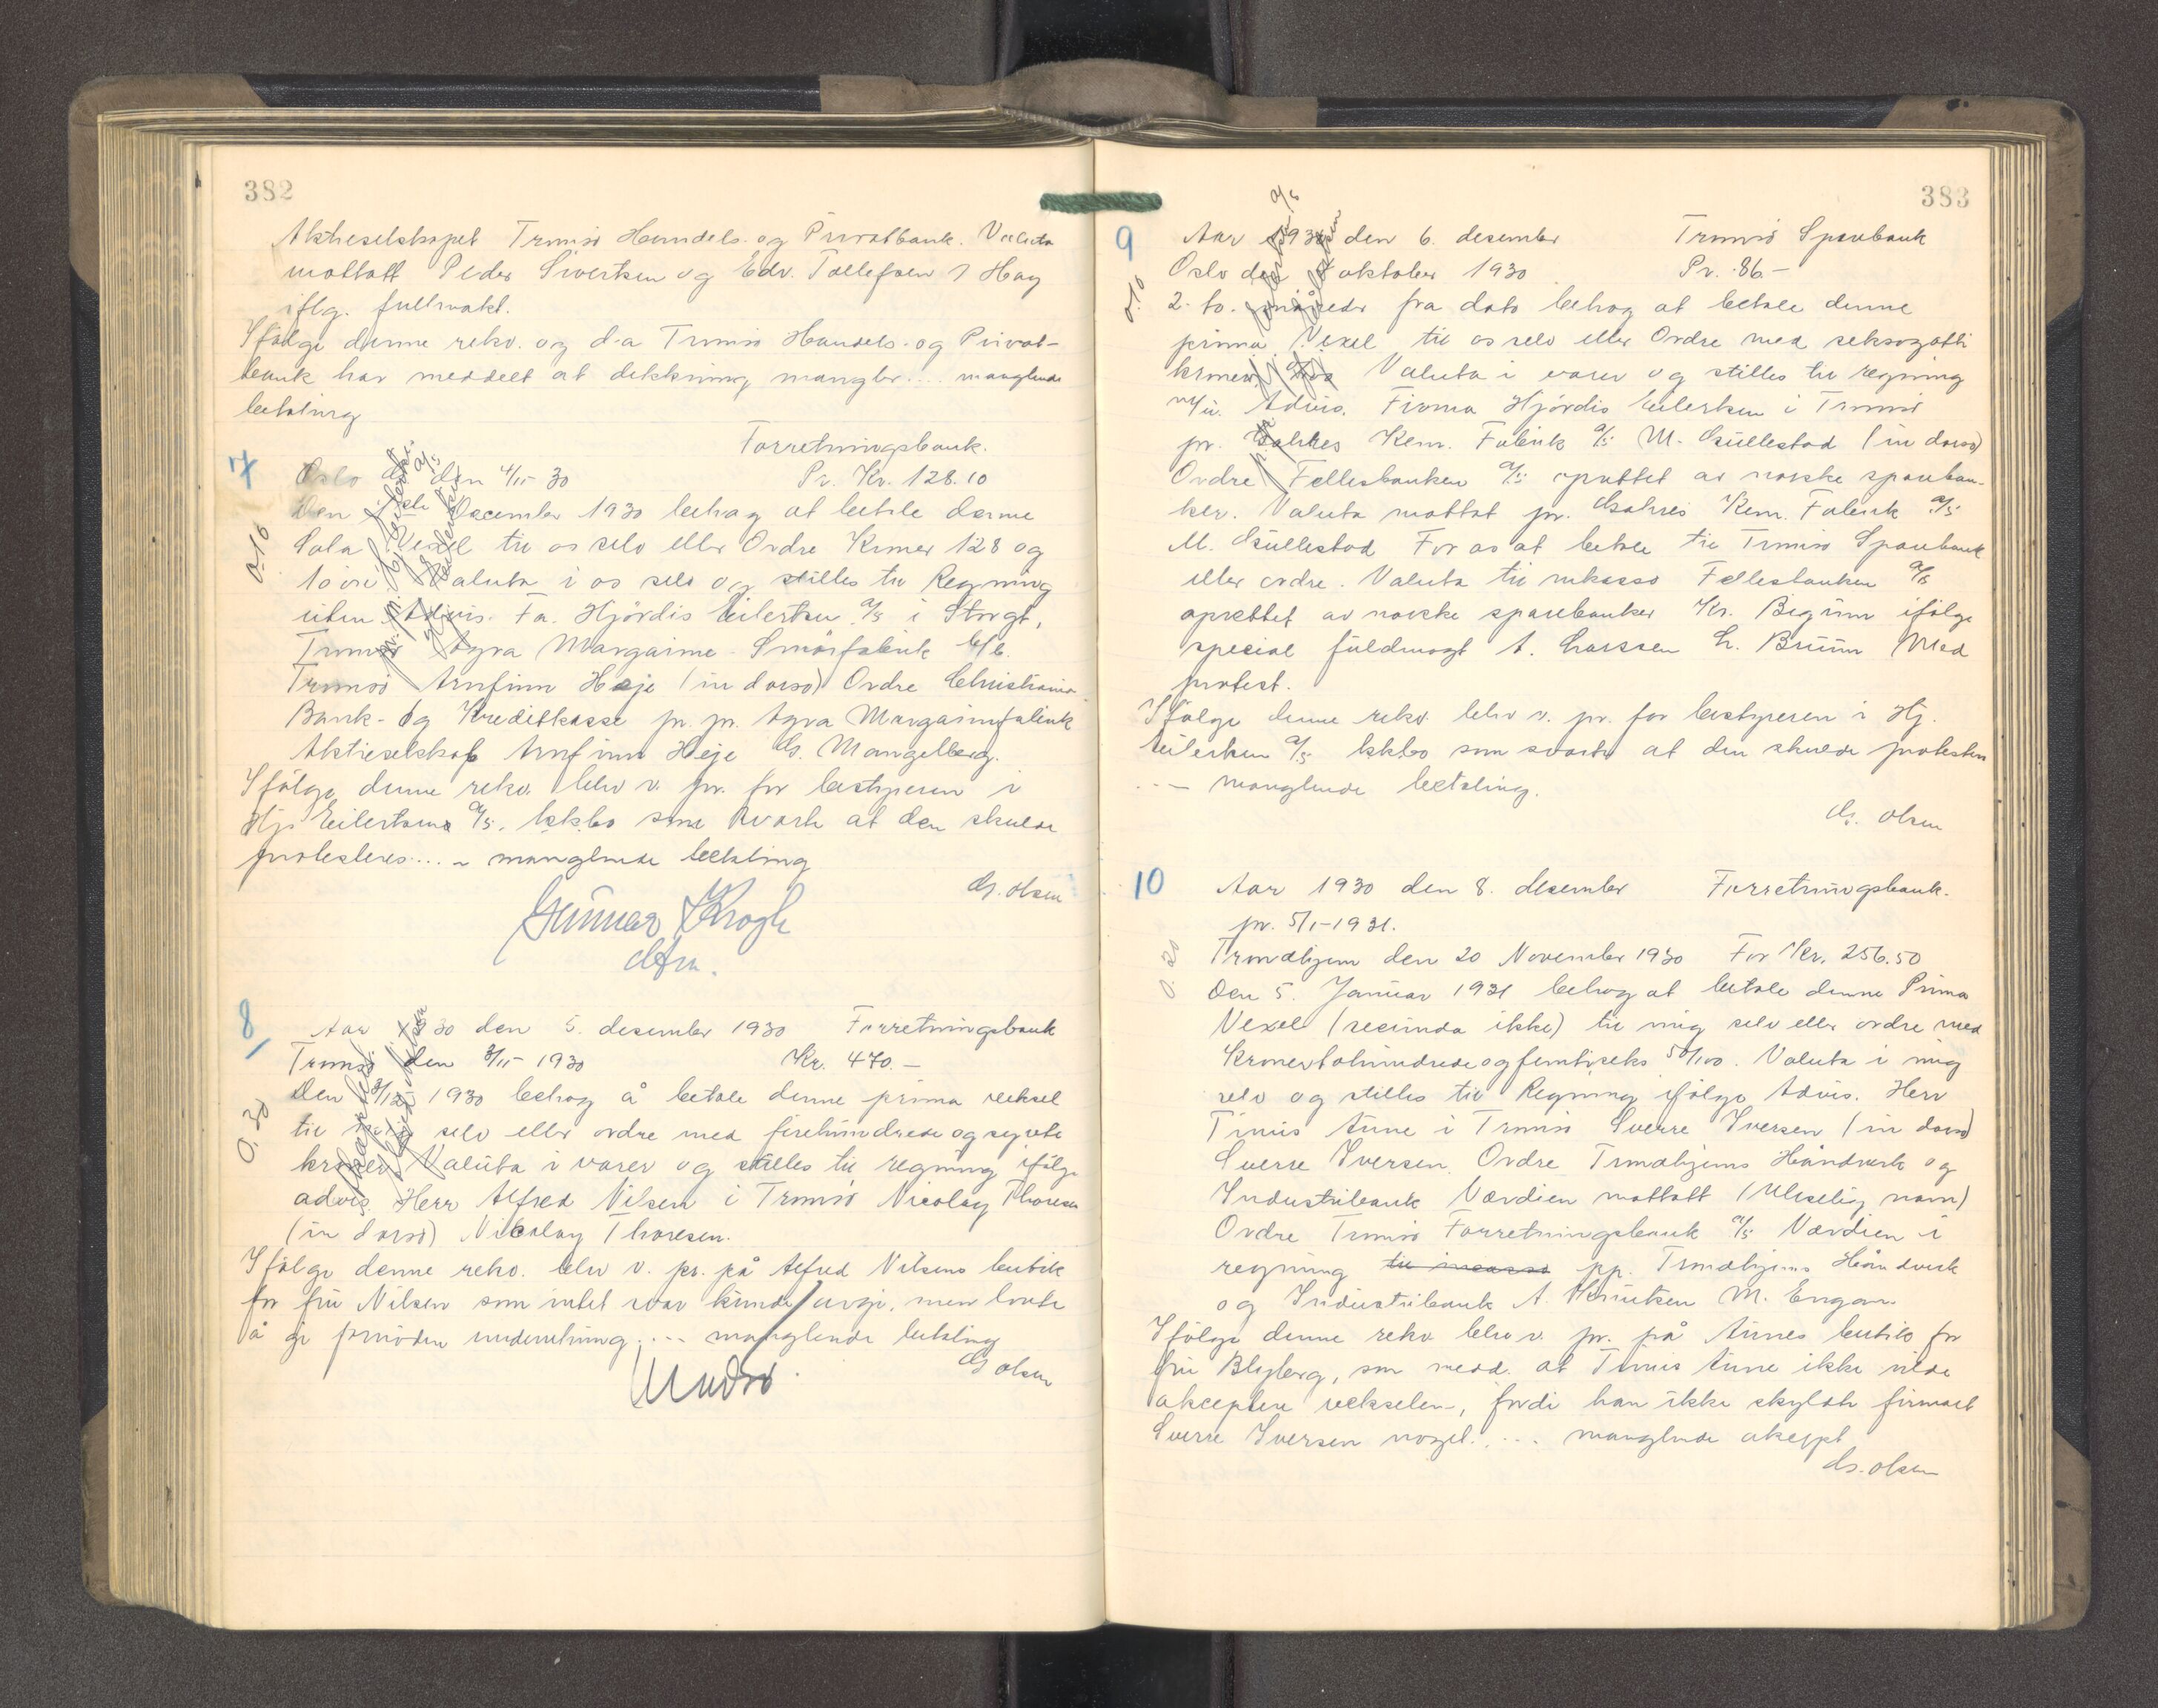 382
Aktieselskapet Tromsö Handels- og Privatbank. Valuta
mottatt Peder Sivertsen og Edv. Tollefsen
iflg. fullmakt.
Ifölge denne rekv. og d.a Tromsö Handels- og Privat-
bank har meddelt at dekkning mangler.... manglende
betaling
Forretningsbank.
7
Oslo den 4/11-30 Pr. Kr. 128.10
0.10
Den December 1930 behag at betale denne
Sola Vexel til os selv eller Ordre Kroner 128 og
10 öre Valuta i os selv og stilles til Regning
uten Advis. Fa. Hjördis Eilertsen A/S i Storgt,
Tromsö Agra Margarine- Smörfabrik
Tromsö Arnfinn Heje (in dorso) Ordre Christiania
Bank- og Kreditkasse pr. pr. Agra Margarinfabrik
Aktieselskab Arnfinn Heje G. Mangelberg.
Ifölge denne rekv. blev v. pr. for bestyreren i
Hj. Eilertsens A/S. som svarte at den skulde
protesteres.... - manglende betaling
G. Olsen
Gunnar Krogh
8
Aar 1930 den 5. desember 1930 Forretningsbank
Tromsö den 3/11-1930 Kr. 470.-
0.30
Den 3/12 1930 behag å betale denne prima veksel
til mig selv eller ordre med firehundrede og sytti
kroner Valuta i varer og stilles til regning ifölge
advis Herr Alfred Nilsen i Tromsö Nicolay Thoresen
(in dorso) Nicolay Thoresen.
Ifölge denne rekv. blev v. pr. på Alfred Nilsens butik
for fru Nilsen som intet svar kunde avgi, men lovte
å gi underretning. ... manglende betaling
G Olsen
383
9
Aar 1930 den 6. desember Tromsö Sparebank
Oslo den oktober 1930 Pr. 86.-
0.10
2- to. måneder fra dato behag at betale denne
prima Vexel til os selv eller Ordre med seksogotti
kroner Valuta i varer og stilles til regning
Advis. Firma Hjördis Eilertsen i Tromsö
pr. Kem. Fabrik A/S M. Gullestad (in dorso)
Ordre Fellesbanken A/S oprettet av norske spareban-
ker. Valuta mottat pr. Kem. Fabrik A/S
M. Gullestad For os at betale til Tromsö Sparebank
eller ordre. Valuta til inkasso Fellesbanken A/S
oprettet av norske sparebanker Kr. ifölge
special fuldmagt A. Larssen Med
protest.
Ifölge denne rekv. blev v. pr. for bestyreren i Hj.
Eilertsen A/S som svarte at den skulde protesteres
... - manglende betaling.
G. Olsen
10
Aar 1930 den 8. desember Forretningsbank.
pr. 5/1-1931.
0.20
Trondhjem den 20 November 1930 For Kr. 256.50
Den 5. Januar 1931 behag at betale denne Prima
Vexel (secunda ikke) til mig selv eller ordre med
Kroner tohundrede og femtiseks 50/100. Valuta i mig
selv og stilles til Regning ifölge Advis. Herr
Tinus Aune i Tromsö Sverre Iversen (in dorso)
Sverre Iversen. Ordre Trondhjems Håndverk og
Industribank Værdien mottatt (Uleselig navn)
Ordre Tromsö Forretningsbank A/S Værdien i
regning til incasso pp. Trondhjems Håndverk
og Industribank A. Knutsen M. Engan.
Ifölge denne rekv. blev v. pr. på Aunes butik for
fru Blyberg, som medd. at Tinus Aune ikke vilde
akceptere vekselen, fordi han ikke skyldte firmaet
Sverre Iversen noget. .... manglende aksept
G. Olsen